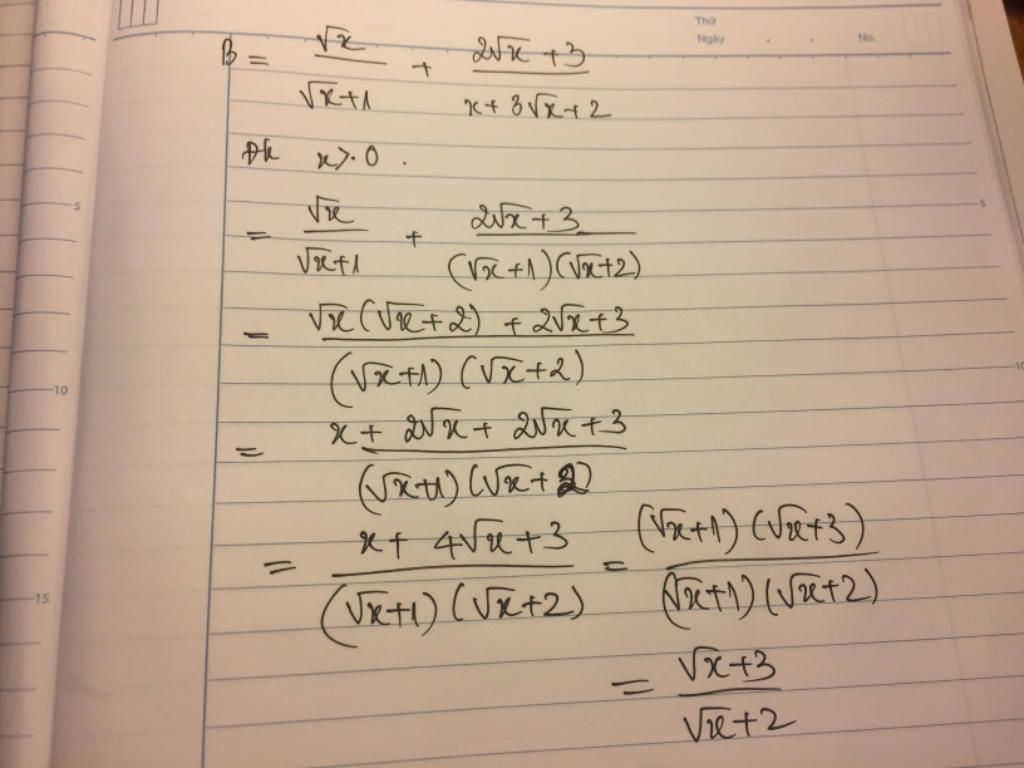 Thứ
Ngày . . No.
B = √x/(√x+1) + (2√x+3)/(x+3√x+2)
Đk x ≥ 0 .
= √x/(√x+1) + (2√x+3)/((√x+1)(√x+2))
= (√x(√x+2) + 2√x+3)/((√x+1)(√x+2))
= (x + 2√x + 2√x+3)/((√x+1)(√x+2))
= (x + 4√x+3)/((√x+1)(√x+2)) = ((√x+1)(√x+3))/((√x+1)(√x+2))
= (√x+3)/(√x+2)
5
5
10
10
15